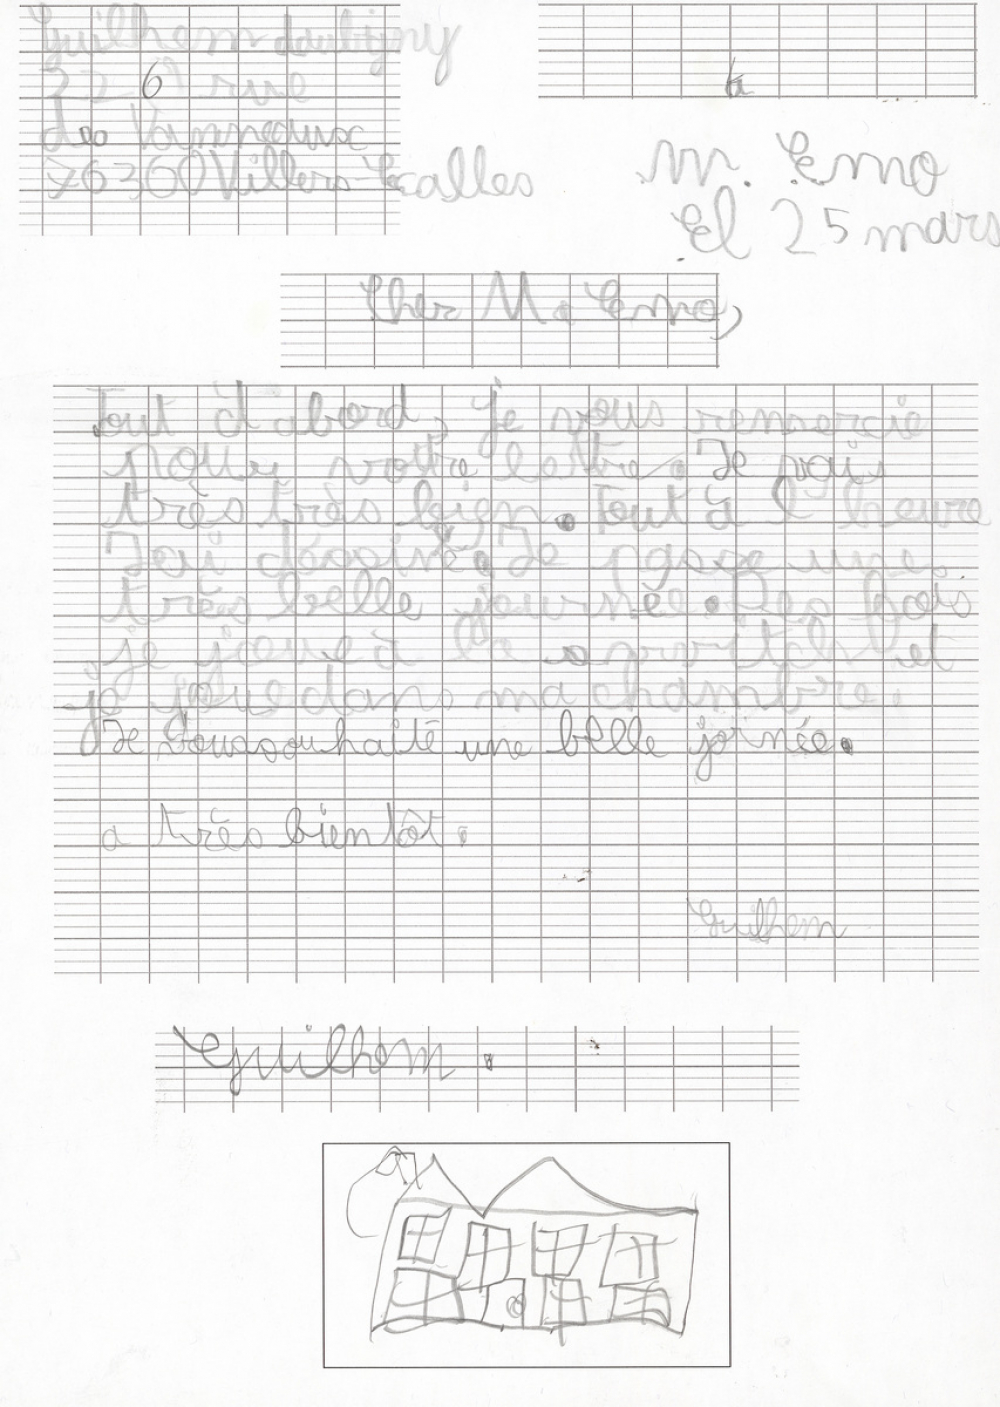 Guilhem daubigny
226 rue
des Vanneaux
76360 Villers-Ecalles
M. Emo
El 25 mars
Cher M. Emo,
Tout d'abord, je vous remercie
pour votre lettre. Je vais
très très bien. Tout à l'heure
J'ai dessiné. Je passe une
très belle journée. Des fois
je joue à la switch et
je joue dans ma chambre.
Je vous souhaite une belle jornée.
a très bientôt.
Guilhem
Guilhem.